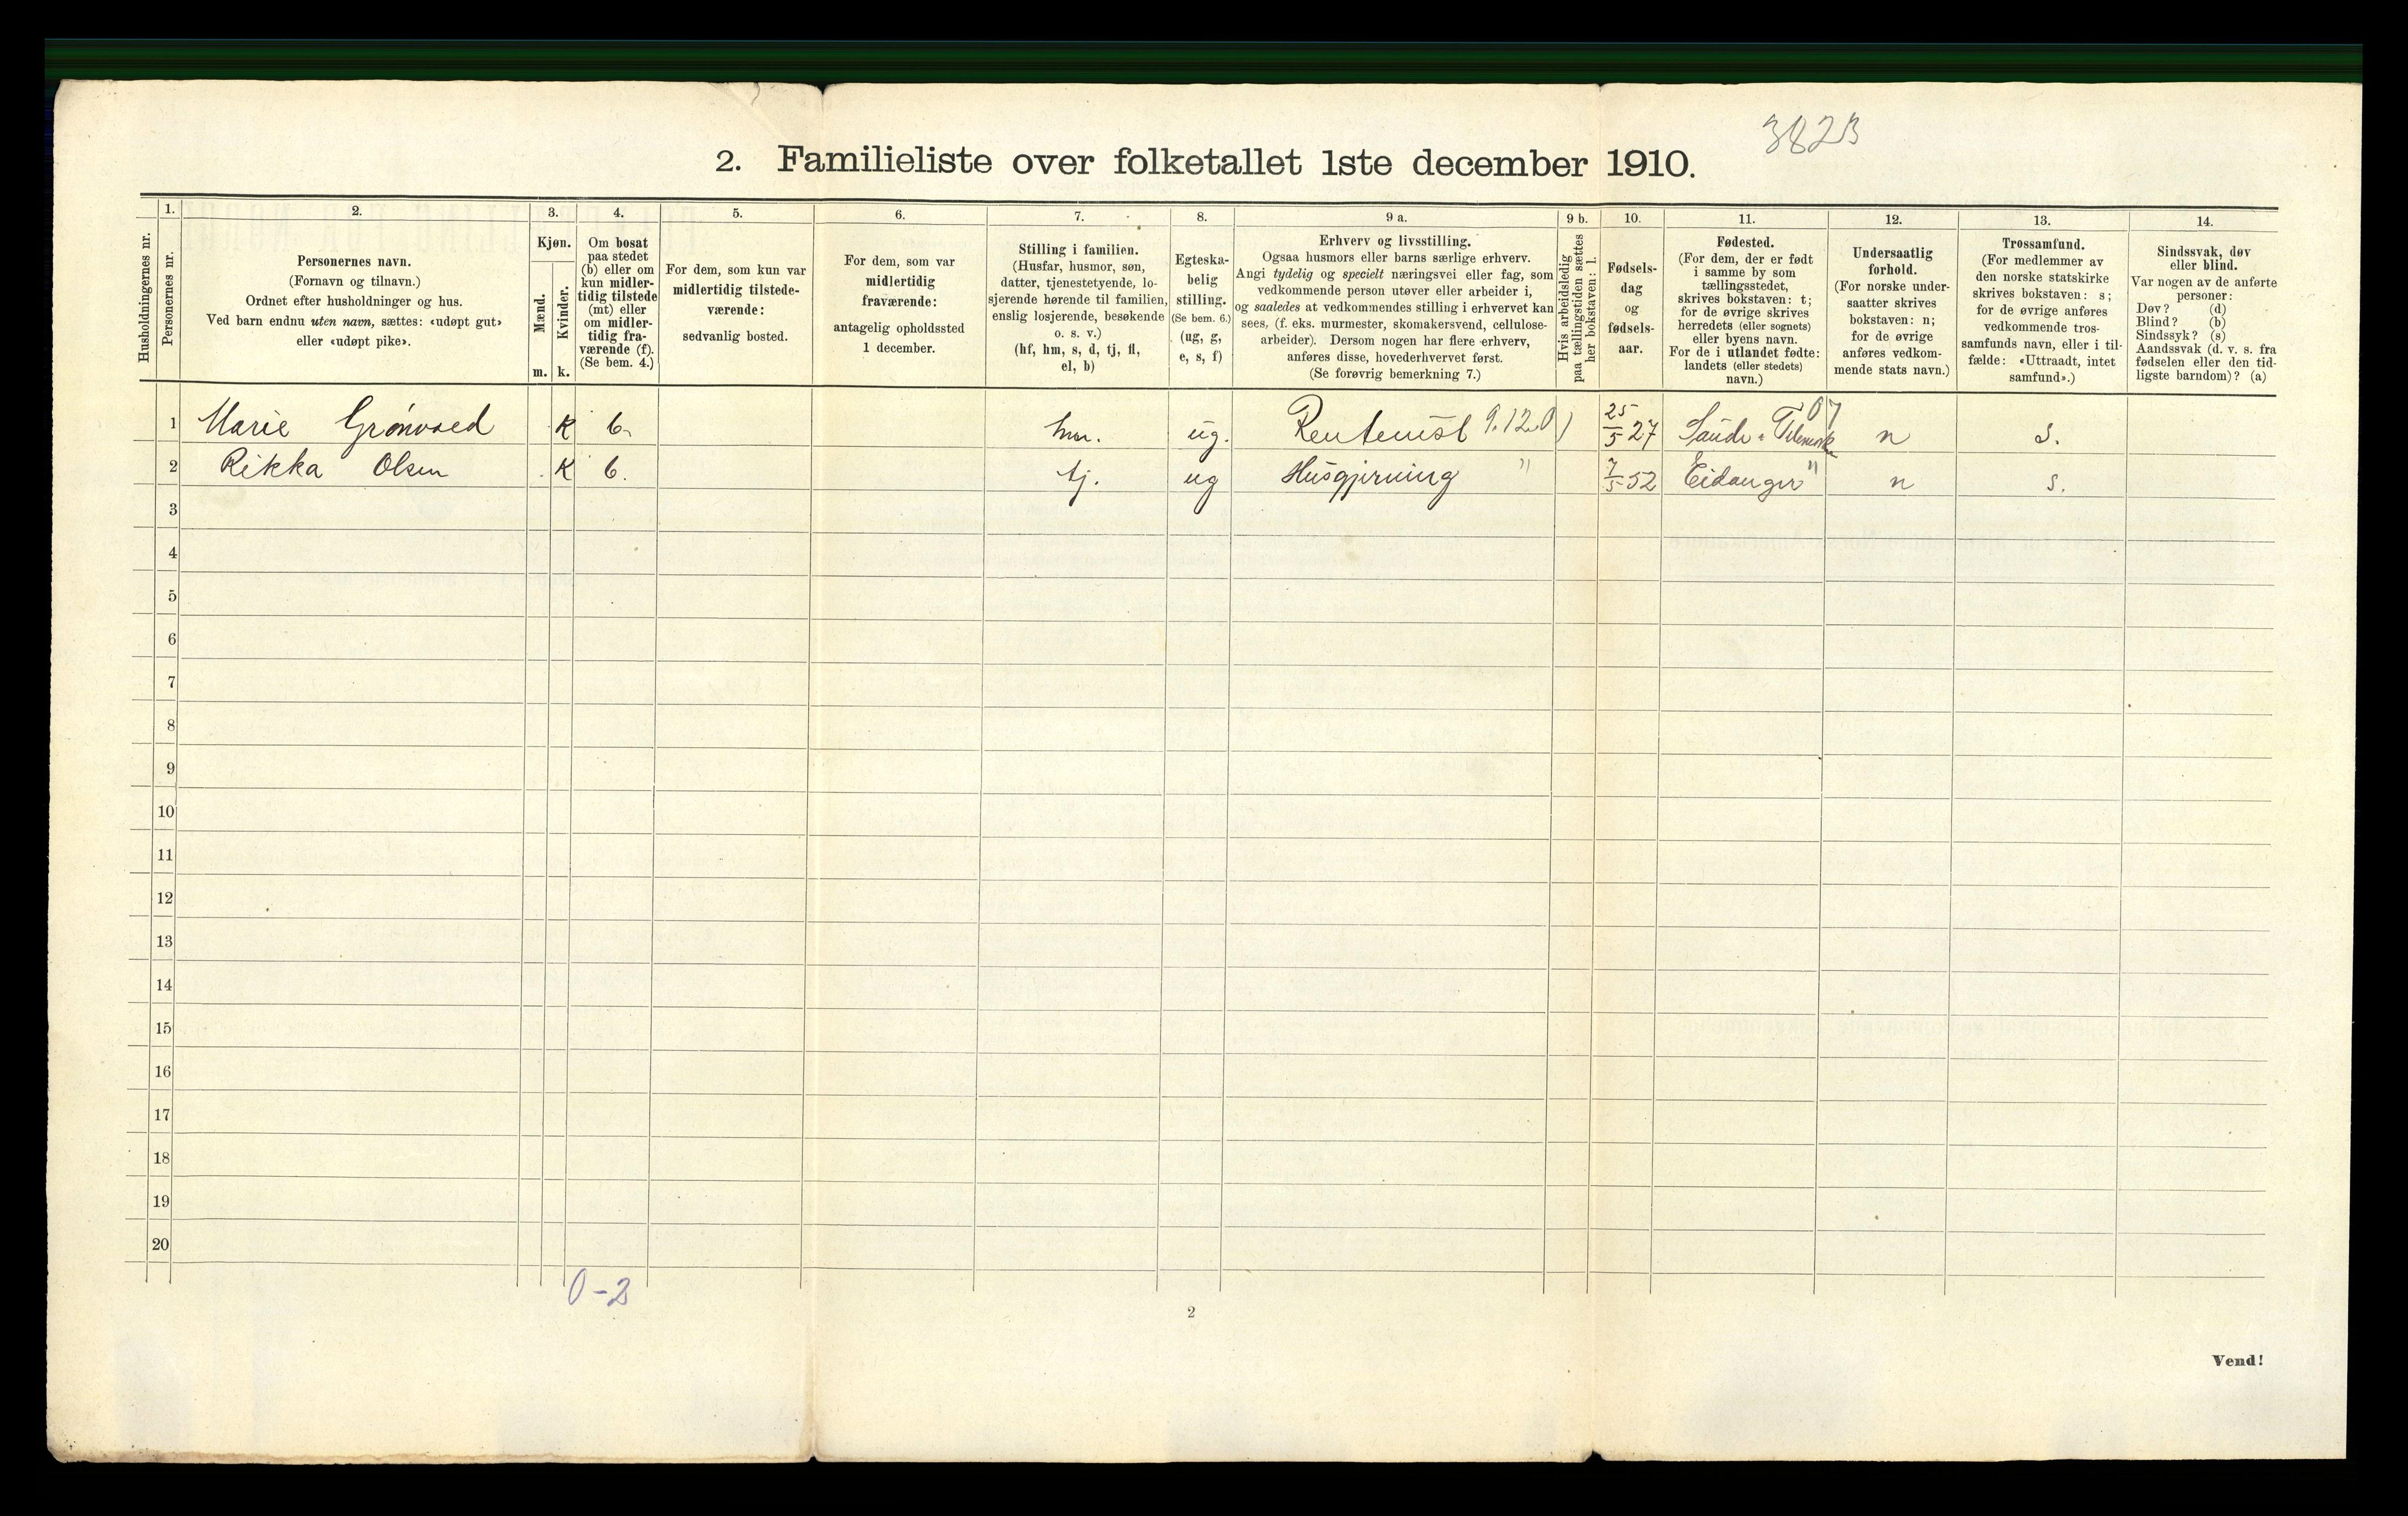 3823
2. Familieliste over folketallet 1ste december 1910.
Husholdningernes nr.
1.
Personernes nr.
2.
Personernes navn.
(Fornavn og tilnavn.)
Ordnet efter husholdninger og hus.
Ved barn endnu uten navn, sættes: «udøpt gut»
eller «udøpt pike».
3.
Kjøn.
Mænd.
Kvinder.
m. k.
4.
Om bosat
paa stedet
(b) eller om
kun midler-
tidig tilstede
(mt) eller
om midler-
tidig fra-
værende (f).
(Se bem. 4.)
5.
For dem, som kun var
midlertidig tilstede-
værende:
sedvanlig bosted.
6.
For dem, som var
midlertidig
fraværende:
antagelig opholdssted
1 december.
7.
Stilling i familien.
(Husfar, husmor, søn,
datter, tjenestetyende, lo-
sjerende hørende til familien,
enslig losjerende, besøkende
o. s. v.)
(hf, hm, s, d, tj, fl,
el, b)
8.
Egteska-
belig
stilling.
(Se bem. 6.)
(ug, g,
e, s, f)
9 a.
Erhverv og livsstilling.
Ogsaa husmors eller barns særlige erhverv.
Angi tydelig og specielt næringsvei eller fag, som
vedkommende person utøver eller arbeider i,
og saaledes at vedkommendes stilling i erhvervet kan
sees, (f. eks. murmester, skomakersvend, cellulose-
arbeider). Dersom nogen har flere erhverv,
anføres disse, hovederhvervet først.
(Se forøvrig bemerkning 7.)
9 b.
Hvis arbeidsledig
paa tællingstiden sættes
her bokstaven: l.
10.
Fødsels-
dag
og
fødsels-
aar.
11.
Fødested.
(For dem, der er født
i samme by som
tællingsstedet,
skrives bokstaven: t;
for de øvrige skrives
herredets (eller sognets)
eller byens navn.
For de i utlandet fødte:
landets (eller stedets)
navn.)
12.
Undersaatlig
forhold.
(For norske under-
saatter skrives
bokstaven: n;
for de øvrige
anføres vedkom-
mende stats navn.)
13.
Trossamfund.
(For medlemmer av
den norske statskirke
skrives bokstaven: s;
for de øvrige anføres
vedkommende tros-
samfunds navn, eller i til-
fælde: «Uttraadt, intet
samfund».)
14.
Sindssvak, døv
eller blind.
Var nogen av de anførte
personer:
Døv? (d)
Blind? (b)
Sindssyk? (s)
Aandssvak (d. v. s. fra
fødselen eller den tid-
ligste barndom)? (a)
1 Marie Grønvold K b. hm. ug. 9.12.0) 25/5 27 07 n s.
2 Rikka Olsen K b. tj. ug Husgjerning " 7/5 52 Eidanger " n s.
3
4
5
6
7
8
9
10
11
12
13
14
15
16
17
18
19
20
0-2
2
Vend!